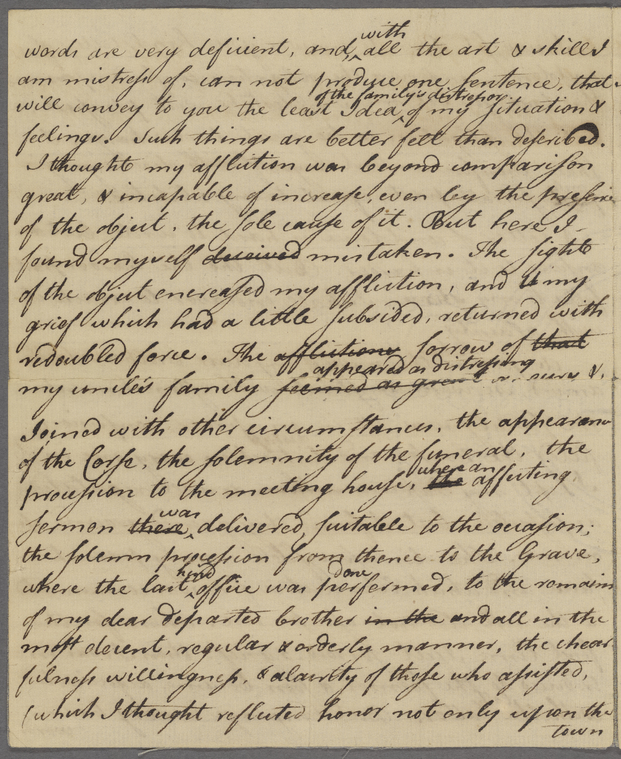 with
words are very deficient, and, all the art & skill I
am mistress of, can not produce one Sentence, that
of the family's distress or
will convey to you the least Idea, of my Situation &
feelings. Such things are better felt than described.
I thought my affliction was beyond comparison
great, & incapable of increase, even by the presence
of the object, the sole cause of it. But here I
found myself deceived mistaken. The sight
of the object encreased my affliction, and my
grief which had a little subsided, returned with
redoubled force. The afflictions sorrow of that
appeared as distressing
my uncle's family seemed as great
Joined with other circumstances, the appearance
of the Corse, the solemnity of the funeral, the
where an
procession to the meeting house, the affecting
was
sermon there, delivered, suitable to the occasion;
the solemn procession from thence to the Grave,
kind done
where the last, office was performed, to the remains
of my dear departed brother in the and all in the
most decent, regular & orderly manner, the chear
fulness willingness, & alacrity of those who assisted,
(which I thought reflected honor not only upon the
town